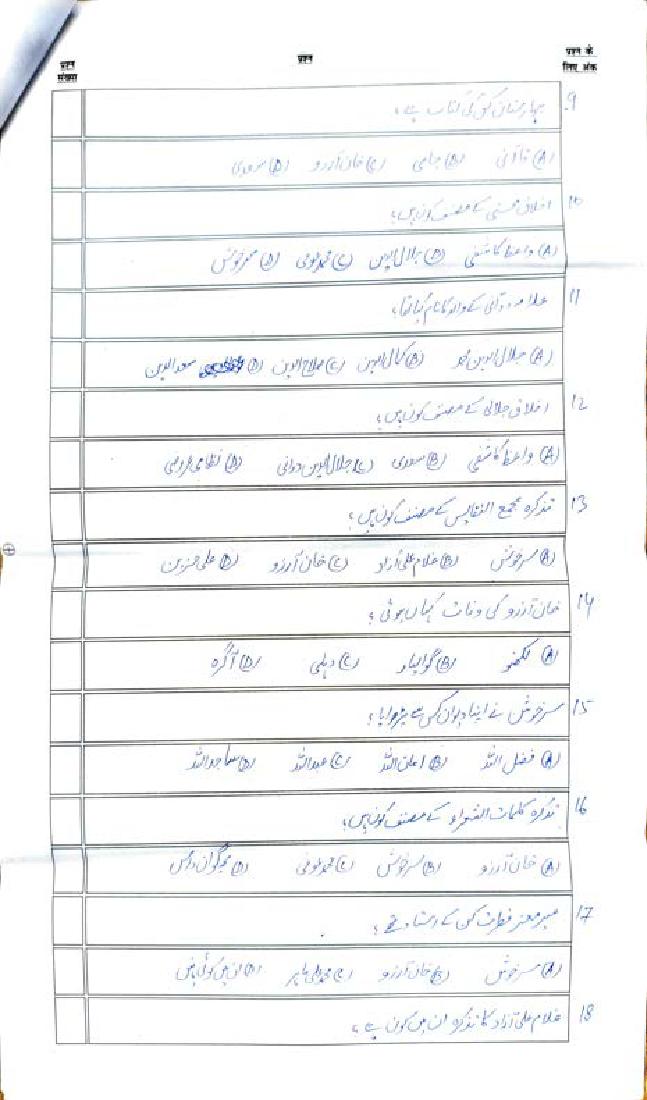 प्रश्न संख्या
प्रश्न
प्रश्न के लिए अंक
9. بہارستان کس کی کتاب ہے؟
(A) قاآنی (B) جامی (C) خان آرزو (D) سعدی
10 اخلاق محسنی کے مصنف کون ہیں؟
(A) واعظ کاشفی (B) جلال الدین (C) محمد عوفی (D) سرخوش
11 علامہ دوانی کے والد کا نام کیا تھا؟
(A) جلال الدین (B) کمال الدین (C) صلاح الدین (D) سعد الدین
12 اخلاق جلالی کے مصنف کون ہیں؟
(A) واعظ کاشفی (B) سعدی (C) جلال الدین دوانی (D) نظامی عروضی
13 تذکرہ مجمع النفایس کے مصنف کون ہیں؟
(A) سرخوش (B) غلام علی آزاد (C) خان آرزو (D) علی حزیں
14 خان آرزو کی وفات کہاں ہوئی؟
(A) لکھنو (B) گوالیار (C) دہلی (D) آگرہ
15 سرخوش نے اپنا دیوان کس سے
(A) فضل اللہ (B) امان اللہ (C) عبداللہ (D) ساجد اللہ
16 تذکرہ کلمات الشعراء کے مصنف کون ہیں؟
(A) خان آرزو (B) سرخوش (C) محمد عوفی (D) بھگوان داس
17 میر معز فطرت کس کے استاد تھے؟
(A) سرخوش (B) خان آرزو (C) محمد علی ماہر (D) ان میں کوئی نہیں
18 غلام علی آزاد کا تذکرہ ان میں کون ہے؟